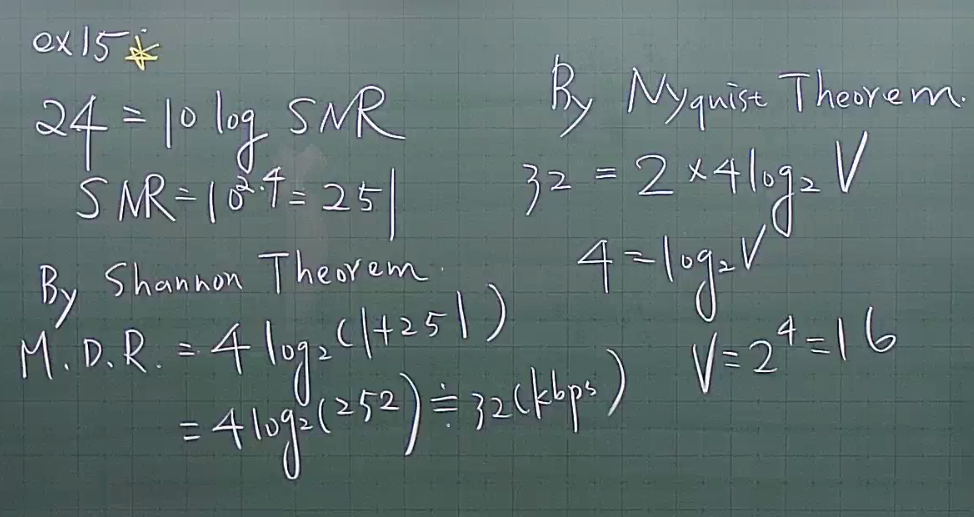 ex15 ☆
24 = 10 log SNR
SNR = 10^2.4 = 251
By Shannon Theorem.
M.D.R. = 4 log₂(1+251)
= 4 log₂(252) ≑ 32(kbps)
By Nyquist Theorem.
32 = 2 × 4 log₂ V
4 = log₂ V
V = 2⁴ = 16